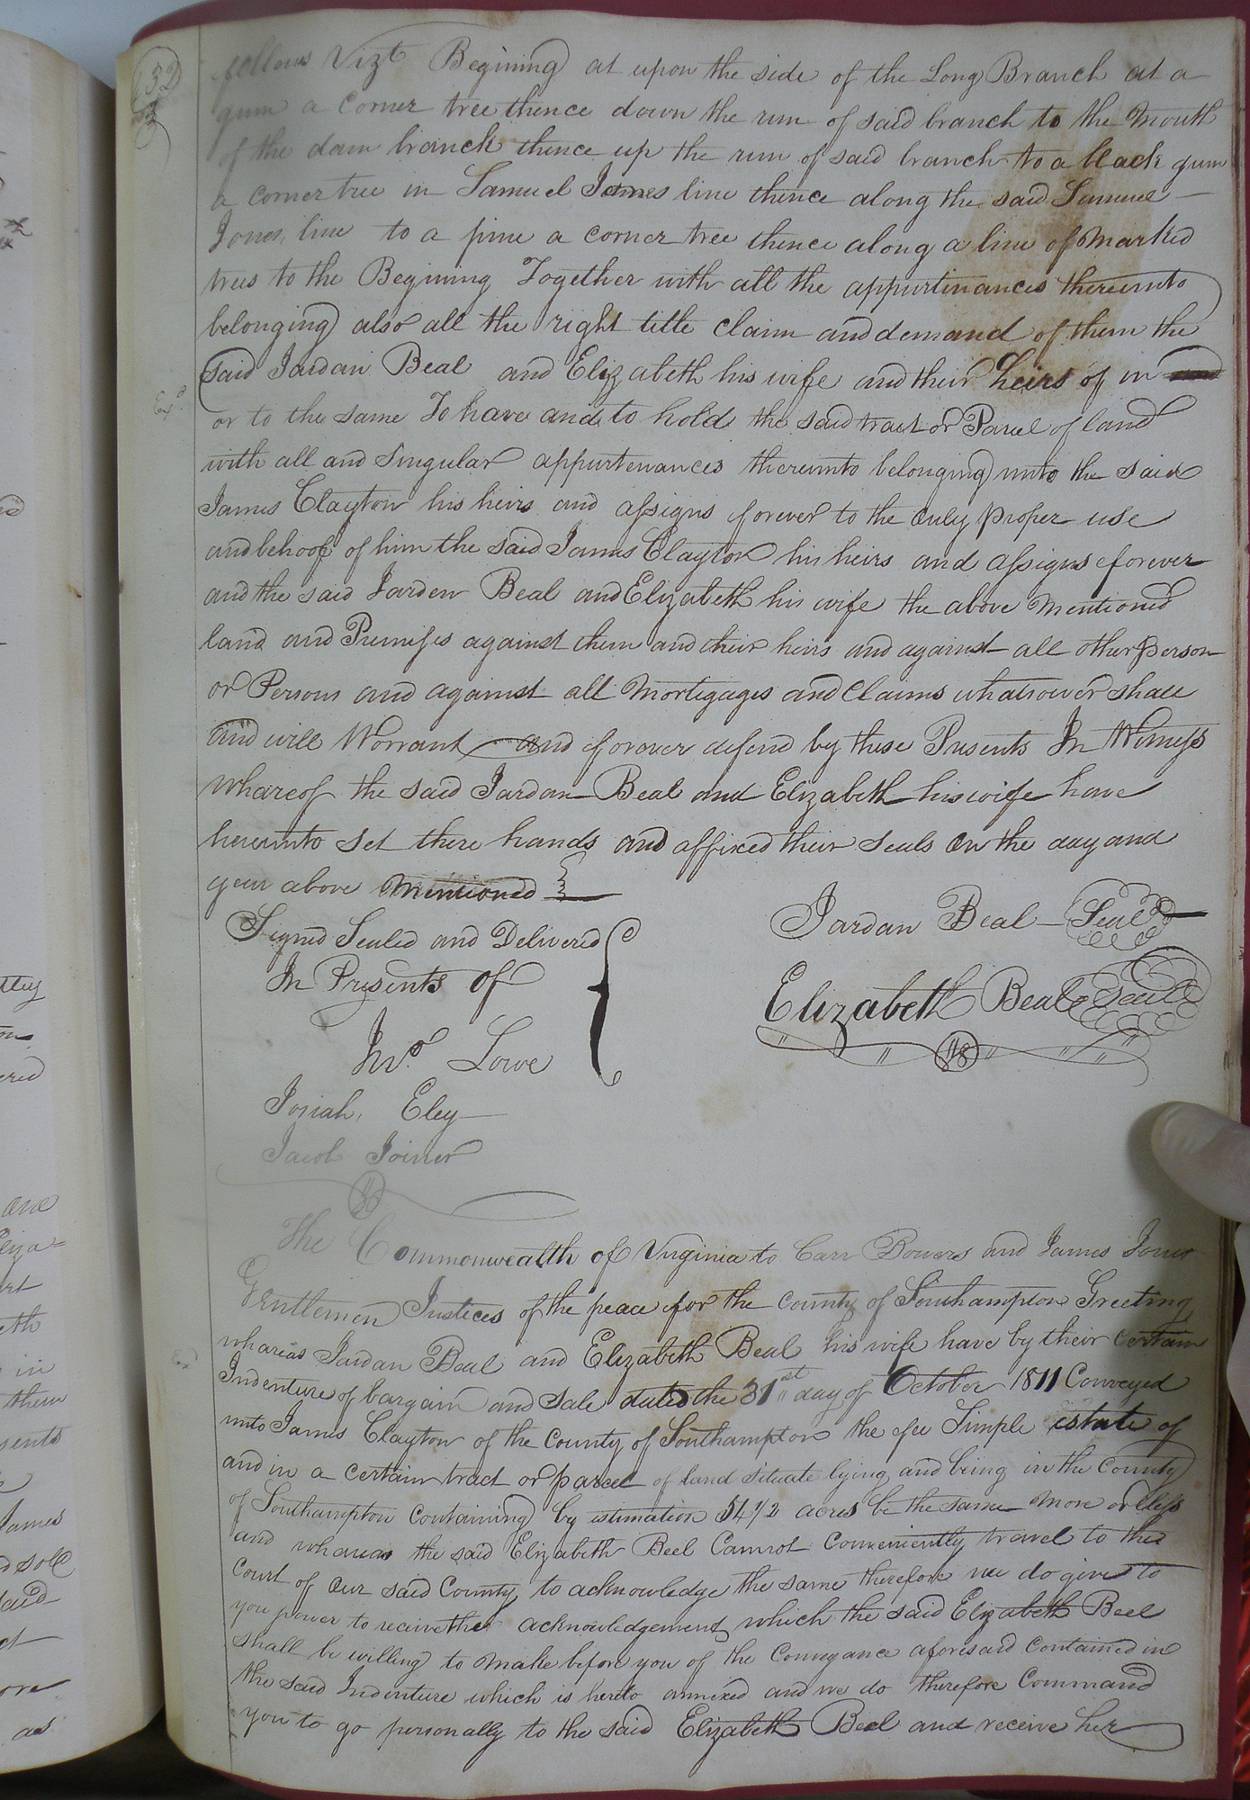 52
follows Vizt Begining at upon the side of the Long Branch at a
gum a Corner tree thence down the run of said branch to the Mouth
of the dam branch thence up the run of said branch to a black gum
a corner tree in Samuel Jones line thence along the said Samuel
Jones line to a pine a corner tree thence along a line of Marked
trees to the Begining Together with all the appurtinances thereunto
belonging also all the right title claim and demand of them the
said Jardan Beal and Elizabeth his wife and their heirs of in
or to the same To have and to hold the said tract or Parcel of land
with all and Singular appurtenances thereunto belonging unto the said
James Clayton his heirs and assigns forever to the only proper use
and behoof of him the said James Clayton his heirs and assigns forever
and the said Jarden Beal and Elizabeth his wife the above Mentioned
land and Premises against them and their heirs and against all other person
or Persons and against all Mortgages and Claims whatsoever shall
and will Worrant and forever defend by these Presents In Witness
whareof the said Jardan Beal and Elizabeth his wife have
hereunto set there hands and affixed their seals on the day and
year above Mentioned
Signed Sealed and Delivered
In Presents of
Jno. Lowe
Josiah Eley
Jacob Joiner
Jardan Beal Seal
Elizabeth Beal Seal
The Commonwealth of Virginia to Carr Bowers and James Jones
Gentlemen Justices of the peace for the county of Southampton Greeting
whareas Jardan Beal and Elizabeth Beal his wife have by their certain
Indenture of bargain and sale dated the 31st day of October 1811 Conveyed
unto James Clayton of the County of Southampton the fee Simple estate of
and in a certain tract or parcel of land situate lying and being in the County
of Southampton containing by estimation 54 1/2 acres be the same More or less
and whareas the said Elizabeth Beel Cannot Conveniently travel to the
Court of our said County to acknowledge the same therefore we do give to
you power to receive the acknowledgement which the said Elizabeth Beel
shall be willing to make before you of the Conveyance aforesaid contained in
the said Indenture which is hereto annexed and we do therefore Command
you to go personally to the said Elizabeth Beel and receive her